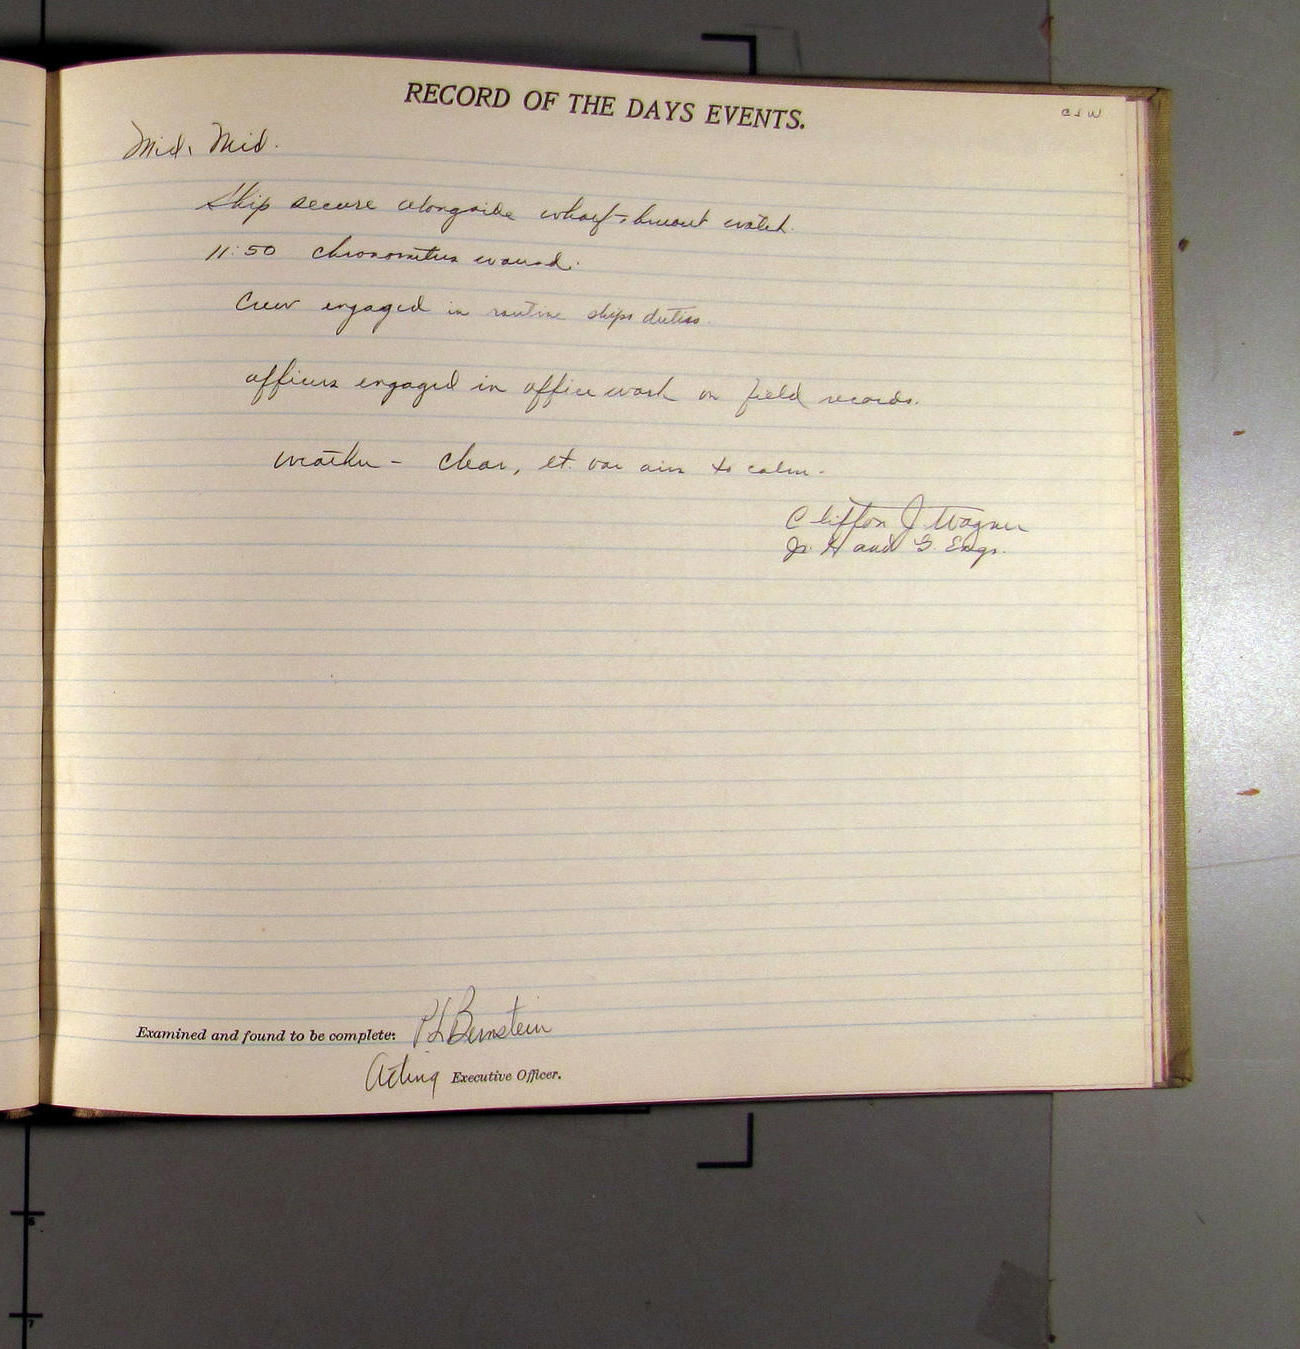 RECORD OF THE DAYS EVENTS.
CJW
Mid. Mid.
Ship secure alongside wharf - watch.
11:50 chronometers wound.
Crew engaged in routine ships duties.
officers engaged in office work on field records.
weather - clear, lt. var airs to calm.
Clifton J. Wagner
Jr. H and G. Engr.
Examined and found to be complete: PLBernstein
Acting Executive Officer.
6
7